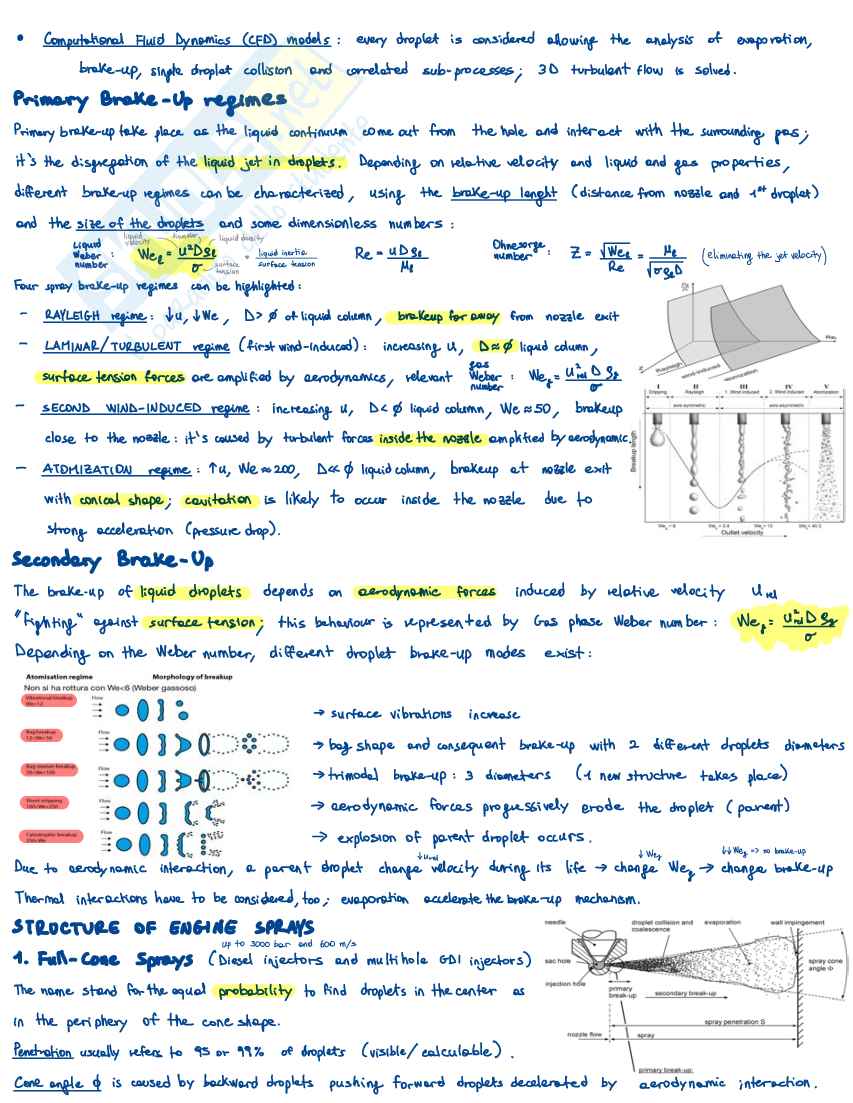 • Computational Fluid Dynamics (CFD) models: every droplet is considered allowing the analysis of evaporation,
brake-up, single droplet collision and correlated sub-processes; 3D turbulent flow is solved.
Primary Brake-Up regimes
Primary brake-up take place as the liquid continuum come out from the hole and interact with the surrounding gas;
it's the disgregation of the liquid jet in droplets. Depending on relative velocity and liquid and gas properties,
different brake-up regimes can be characterized, using the brake-up lenght (distance from nozzle and 1st droplet)
and the size of the droplets and some dimensionless numbers:
Liquid Weber number: We_l = u²Dρ_l / σ = liquid inertia / surface tension   Re = uDρ_l / μ_l   Ohnesorge number: Z = √We_l / Re = μ_l / √(σρ_lD) (eliminating the jet velocity)
liquid velocity
diameter
liquid density
surface tension
Four spray brake-up regimes can be highlighted:
- RAYLEIGH regime: ↓u, ↓We, D > ϕ of liquid column, breakup far away from nozzle exit
- LAMINAR/TURBULENT regime (first wind-induced): increasing u, D ≈ ϕ liquid column,
surface tension forces are amplified by aerodynamics, relevant gas Weber number: We_g = u²_rel D ρ_g / σ
- SECOND WIND-INDUCED regime: increasing u, D < ϕ liquid column, We ≈ 50, breakup
close to the nozzle: it's caused by turbulent forces inside the nozzle amplified by aerodynamic.
- ATOMIZATION regime: ↑u, We ≈ 200, D << ϕ liquid column, breakup at nozzle exit
with conical shape; cavitation is likely to occur inside the nozzle due to
strong acceleration (pressure drop).
Rayleigh
wind-induced
atomization
I II III IV V
Dripping Rayleigh 1. Wind induced 2. Wind induced Atomization
axis-symmetric axis-asymmetric
Breakup length
Outlet velocity
Secondary Brake-Up
The brake-up of liquid droplets depends on aerodynamic forces induced by relative velocity u_rel
"fighting" against surface tension; this behaviour is represented by Gas phase Weber number: We_g = u²_rel D ρ_g / σ
Depending on the Weber number, different droplet brake-up modes exist:
Atomisation regime Morphology of breakup
Non si ha rottura con We<6 (Weber gassoso)
Vibrational breakup
We<12
Flow
→ surface vibrations increase
Bag breakup
12<We<50
Flow
→ bag shape and consequent brake-up with 2 different droplets diameters
Bag-stamen breakup
50<We<100
Flow
→ trimodal brake-up: 3 diameters (1 new structure takes place)
Sheet stripping
100<We<350
Flow
→ aerodynamic forces progressively erode the droplet (parent)
Catastrophic breakup
350<We
Flow
→ explosion of parent droplet occurs.
↓u_rel ↓We_g ↓↓We_g => no brake-up
Due to aerodynamic interaction, a parent droplet change velocity during its life → change We_g → change brake-up
Thermal interactions have to be considered, too; evaporation accelerate the brake-up mechanism.
STRUCTURE OF ENGINE SPRAYS
up to 3000 bar and 600 m/s
1. Full-Cone Sprays (Diesel injectors and multihole GDI injectors)
The name stand for the equal probability to find droplets in the center as
in the periphery of the cone shape.
Penetration usually refers to 95 or 99% of droplets (visible/calculable).
Cone angle ϕ is caused by backward droplets pushing forward droplets decelerated by aerodynamic interaction.
needle
droplet collision and coalescence
evaporation
wall impingement
sac hole
injection hole
spray cone angle Φ
primary break-up
secondary break-up
spray penetration S
nozzle flow
spray
primary break-up: